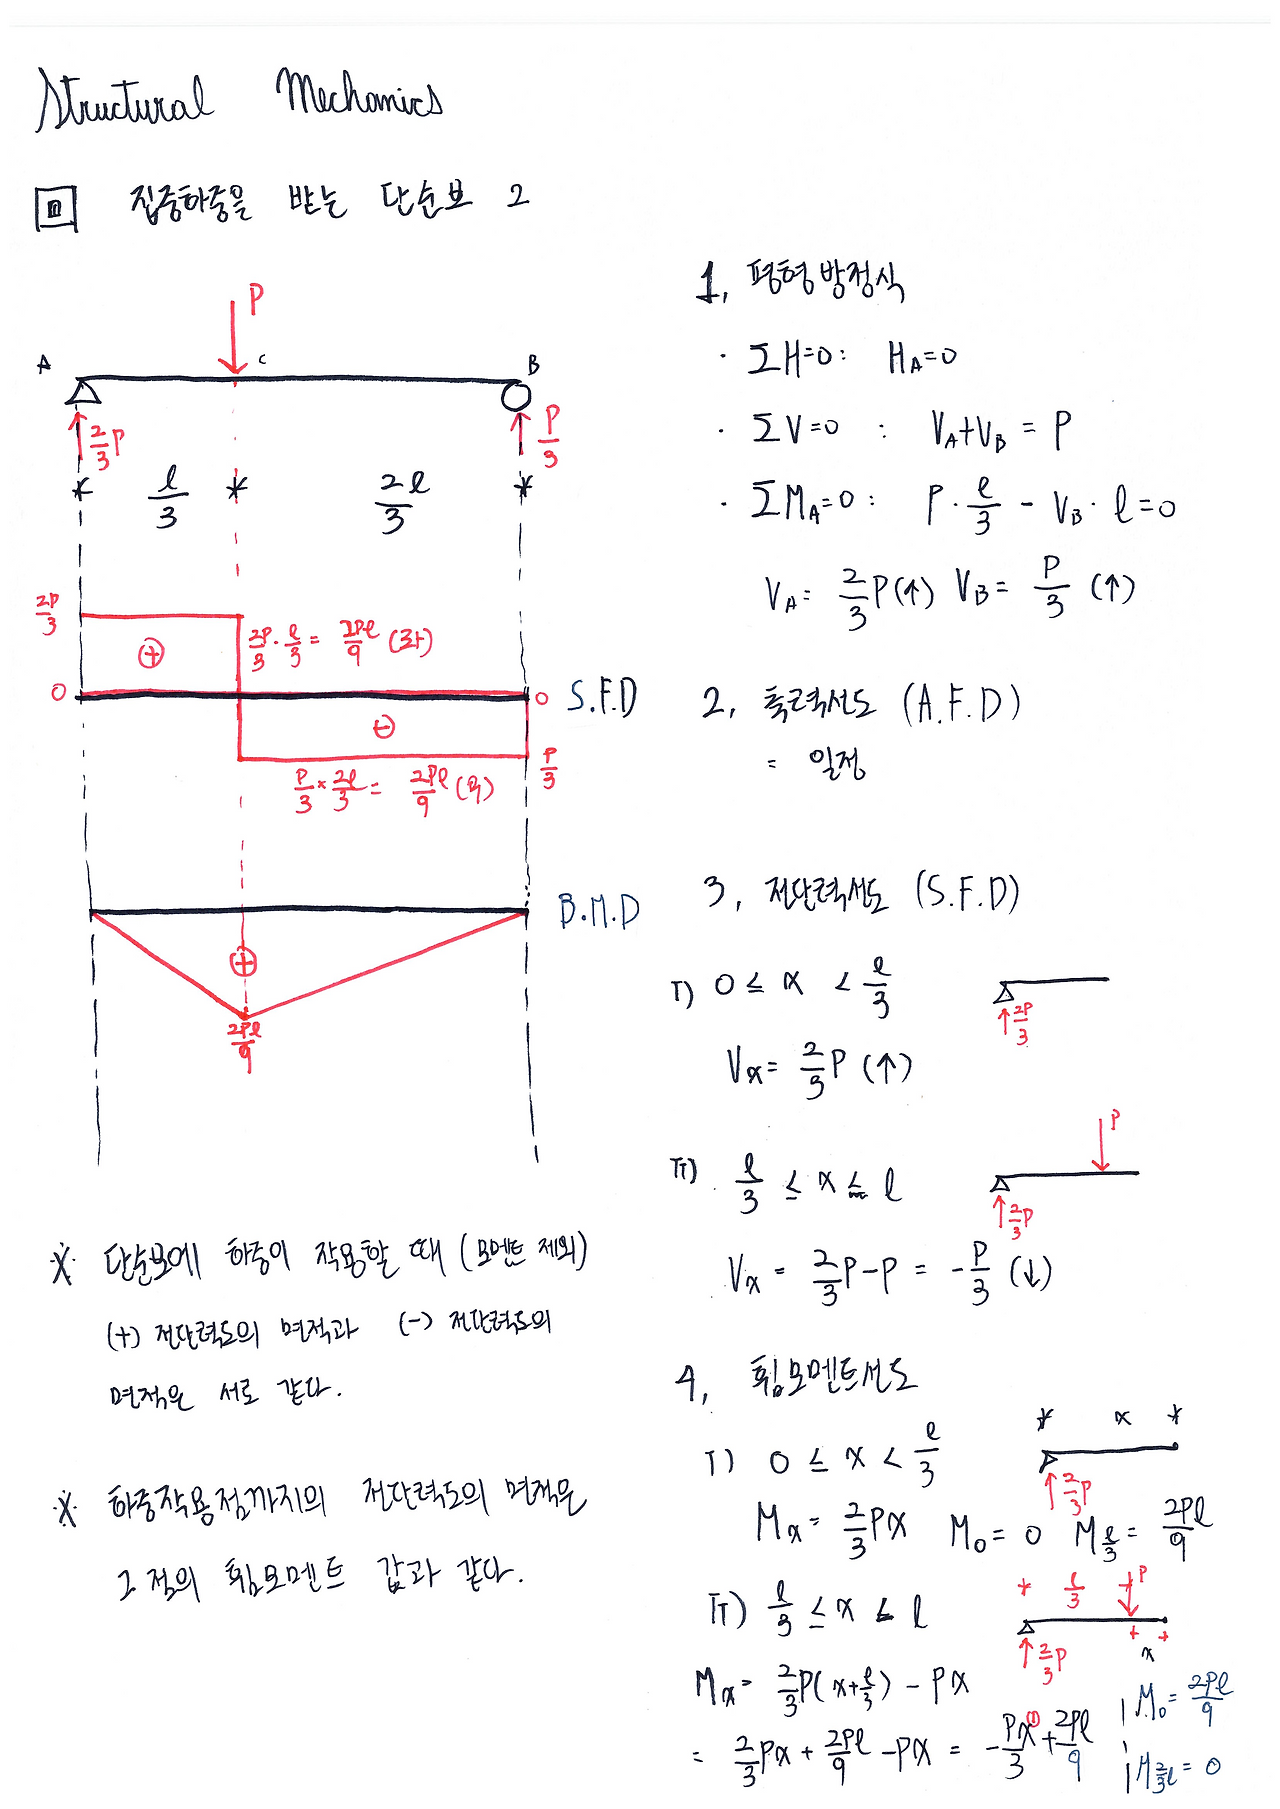 Structural Mechanics
집중하중을 받는 단순보 2
P
A
C
B
2/3 P
P/3
l/3
2l/3
2P/3
⊕
2P/3 · l/3 = 2Pl/9 (좌)
0
0
S.F.D
⊖
P/3 × 2l/3 = 2Pl/9 (우)
P/3
B.M.D
⊕
2Pl/9
※ 단순보에 하중이 작용할 때 (모멘트 제외)
(+) 전단력도의 면적과 (-) 전단력도의
면적은 서로 같다.
※ 하중작용점까지의 전단력도의 면적은
그 점의 휨모멘트 값과 같다.
1, 평형방정식
· ΣH=0: H_A=0
· ΣV=0 : V_A+V_B = P
· ΣM_A=0: P · l/3 - V_B · l=0
V_A= 2/3 P(↑) V_B= P/3 (↑)
2, 축력선도 (A.F.D)
= 일정
3, 전단력선도 (S.F.D)
I) 0 ≤ x < l/3
2P/3
Vx= 2/3 P (↑)
P
II) l/3 ≤ x ≤ l
2/3 P
Vx = 2/3 P-P = -P/3 (↓)
4, 휨모멘트선도
x
I) 0 ≤ x < l/3
2/3 P
Mx= 2/3 Px M₀= 0 M l/3 = 2Pl/9
l/3
P
II) l/3 ≤ x ≤ l
2/3 P
x
Mx= 2/3 P(x+l/3) - Px
M₀= 2Pl/9
= 2/3 Px + 2Pl/9 - Px = -Px①/3 + 2Pl/9
M 2/3 l = 0